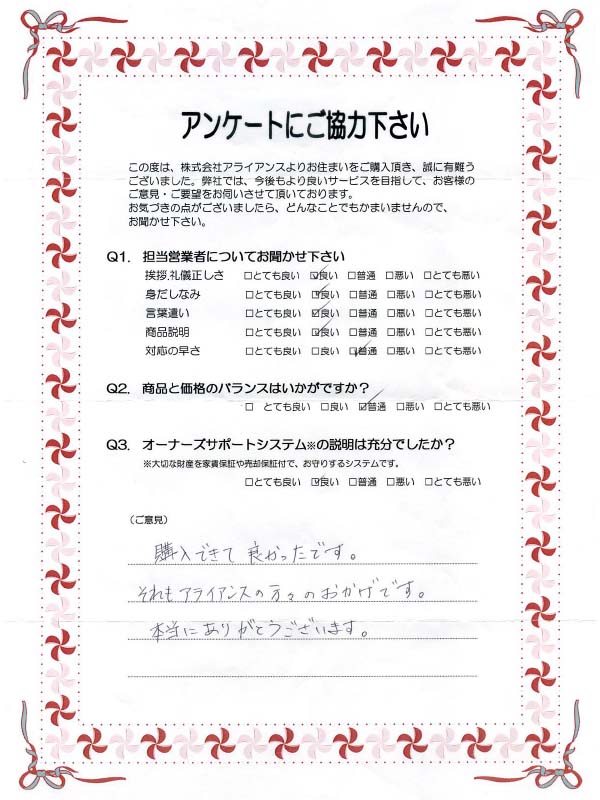 アンケートにご協力下さい
この度は、株式会社アライアンスよりお住まいをご購入頂き、誠に有難う
ございました。弊社では、今後もより良いサービスを目指して、お客様の
ご意見・ご要望をお伺いさせて頂いております。
お気づきの点がございましたら、どんなことでもかまいませんので、
お聞かせ下さい。
Q1. 担当営業者についてお聞かせ下さい
挨拶,礼儀正しさ □とても良い ☑良い □普通 □悪い □とても悪い
身だしなみ □とても良い ☑良い □普通 □悪い □とても悪い
言葉遣い □とても良い ☑良い □普通 □悪い □とても悪い
商品説明 □とても良い ☑良い □普通 □悪い □とても悪い
対応の早さ □とても良い □良い ☑普通 □悪い □とても悪い
Q2. 商品と価格のバランスはいかがですか?
□ とても良い □良い ☑普通 □悪い □とても悪い
Q3. オーナーズサポートシステム※の説明は充分でしたか?
※大切な財産を家賃保証や売却保証付で、お守りするシステムです。
□とても良い ☑良い □普通 □悪い □とても悪い
(ご意見)
購入できて良かったです。
それもアライアンスの方々のおかげです。
本当にありがとうございます。